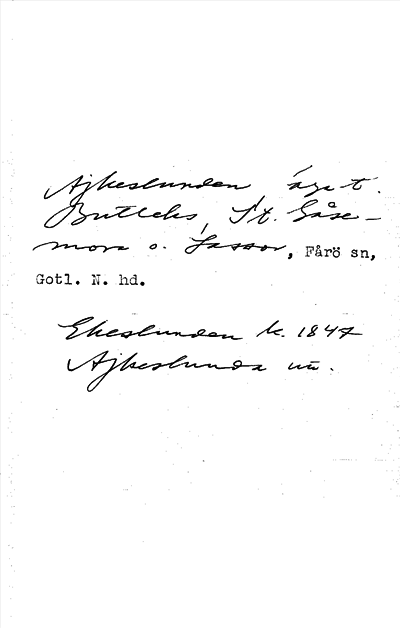 Ajkeslunden, äga t.
Butleks, St. Gåse-
mora o. Lassor, Fårö sn,
Gotl. N. hd.
Ekeslunden k. 1847
Ajkeslunda uü.